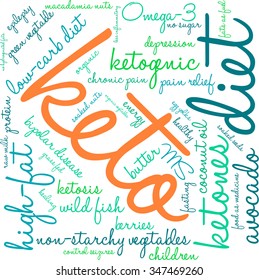 macadamia nuts
Omega-3
no sugar
epilepsy
green vegetable
low-carb diet
organic
depression
ketogenic
chronic pain
pain relief
keto
diet
soaked nuts
energy
healthy
raw milk
protein
bipolar disease
butter
MS
coconut oil
fasting
ketones
food as medicine
avocado
high-fat
ketosis
wild fish
berries
non-starchy vegetables
control seizures
children
www.shutterstock.com · 347469260